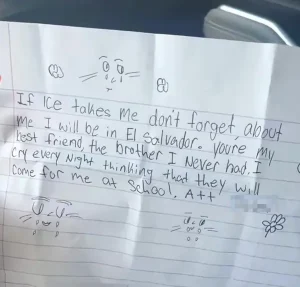 If Ice takes me don't forget, about
me I will be in El Salvador. You're my
best friend, the brother I Never had. I
cry every Night thinking that they will
come for me at School. Att